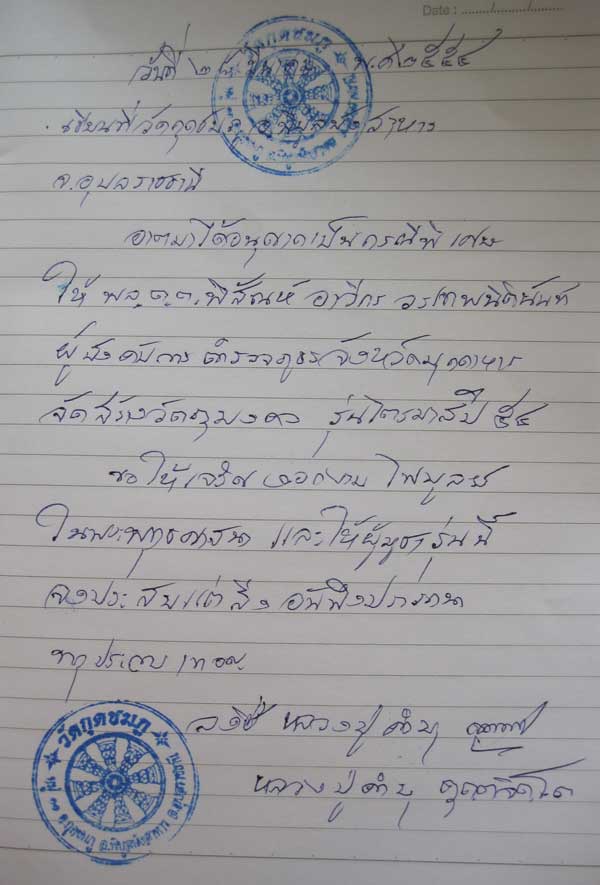 Date : ......./......./.......
วันที่ ๒๘ มีนาคม พ.ศ ๒๕๕๔
เขียนที่วัดกุดชมภู อ.พิบูลมังสาหาร
จ.อุบลราชธานี
อาตมาได้อนุญาตเป็นกรณีพิเศษ
ให้ พล.ต.ต.พิสัณห์ อาวีกร วรเทพนิตินันท์
ผู้บังคับการตำรวจภูธรจังหวัดมุกดาหาร
จัดสร้างวัตถุมงคล รุ่นไตรมาสปี ๕๔
ขอให้เจริญงอกงาม ไพบูลย์
ในพระพุทธศาสนา และให้ผู้บูชารุ่นนี้
จงประสบแต่สิ่งอันพึงปรารถนา
ทุกประการ เทอญ
ลงชื่อ หลวงปู่คำบุ
หลวงปู่คำบุ คุตฺตจิตฺโต
วัดกุดชมภู